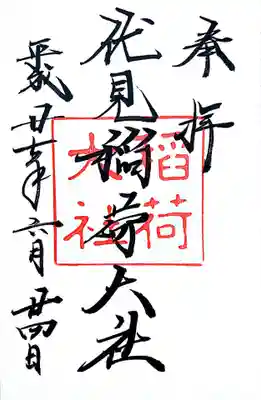 奉拝
伏見稲荷大社
平成廿年六月廿四日
稲荷
大社